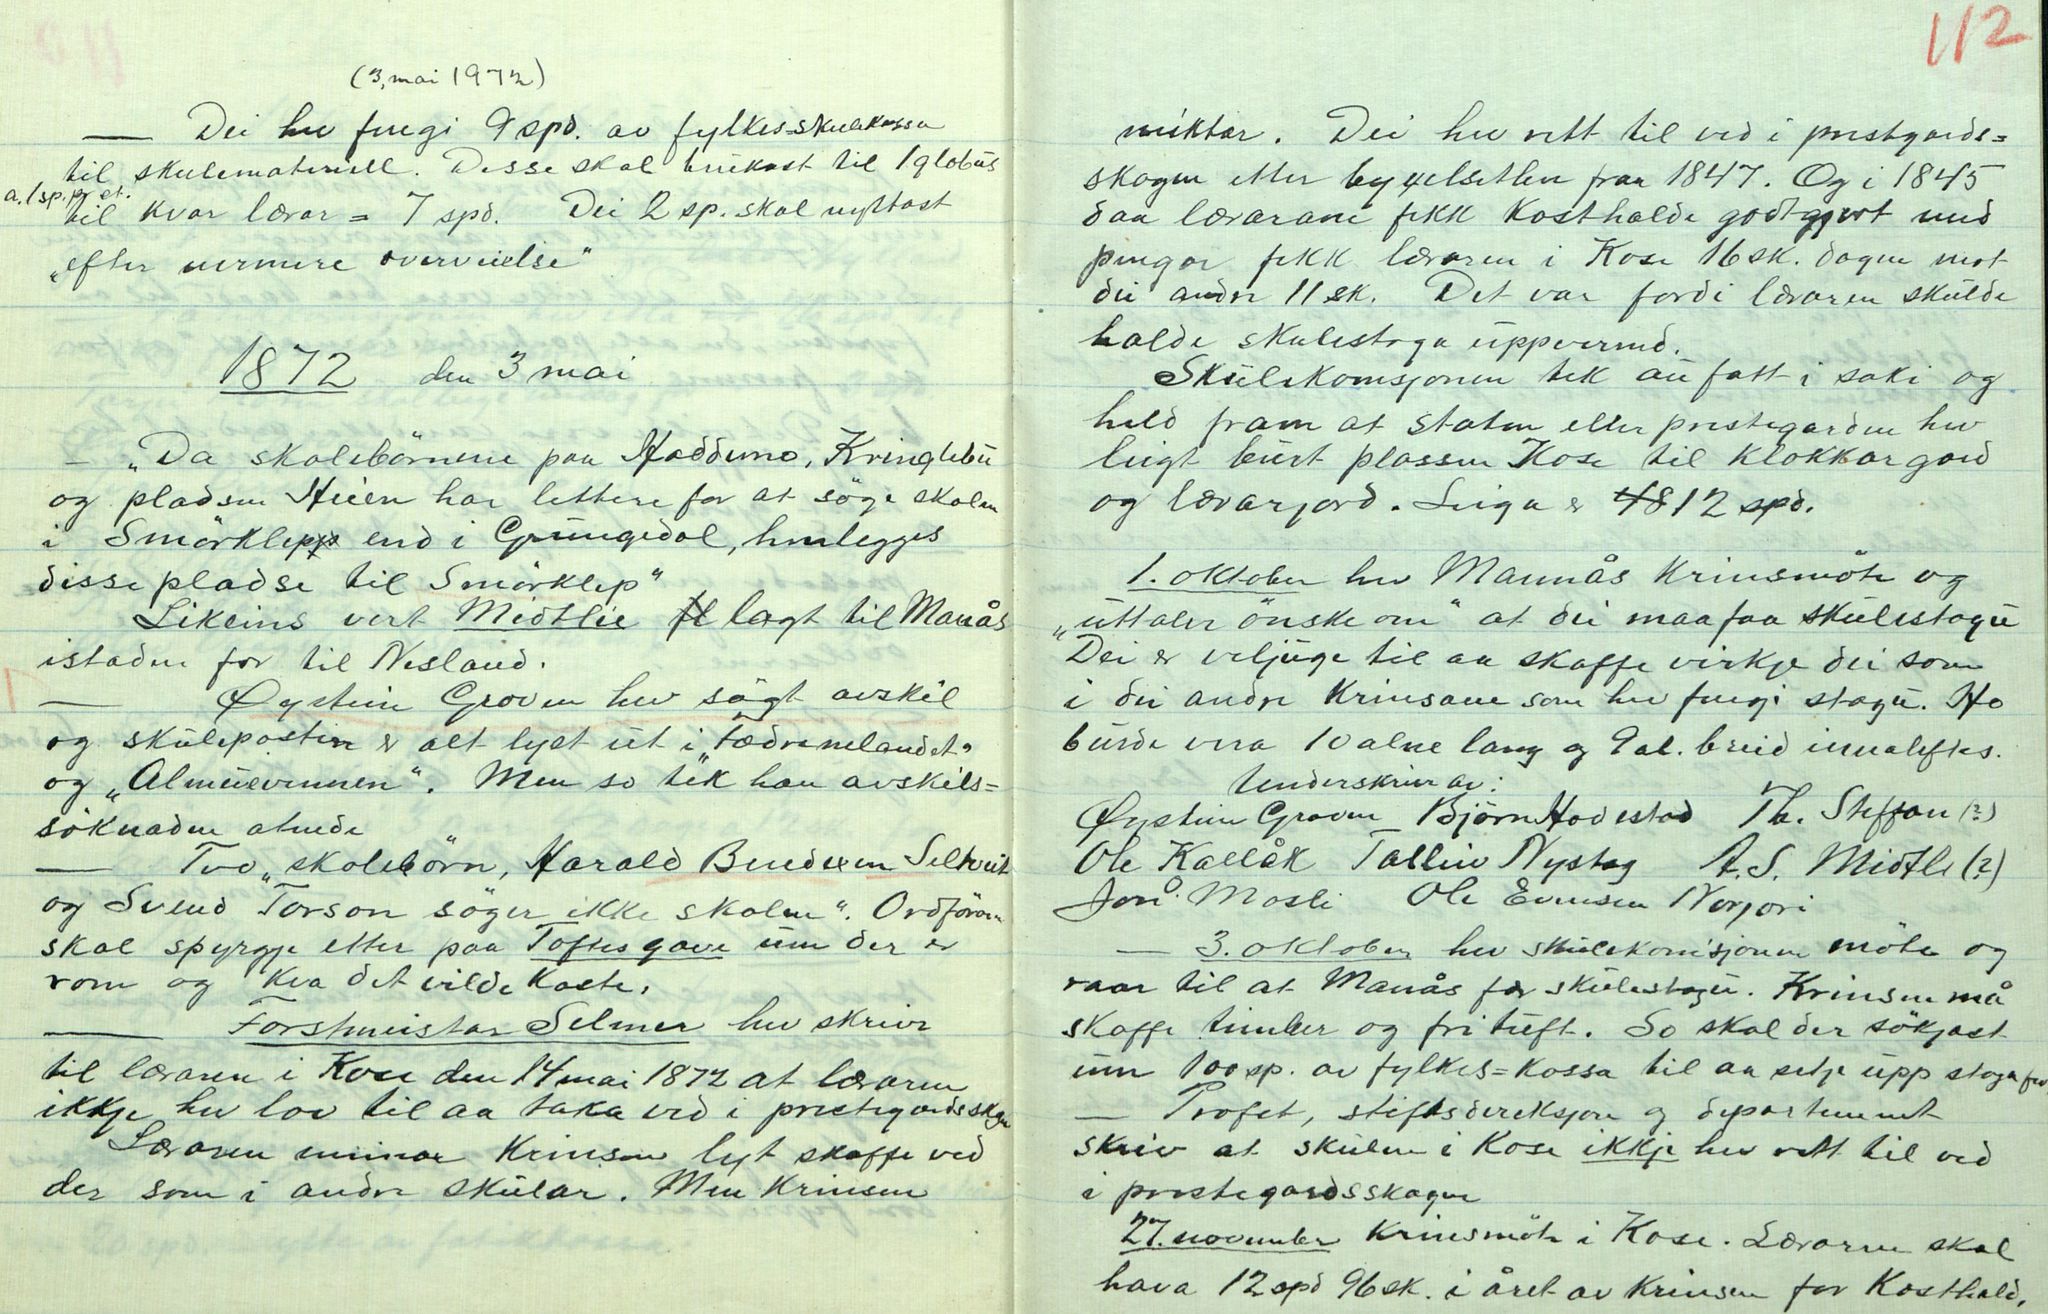 (3, mai 1972)
— Dei hev fengi 9 spd. av fylkes-skulekassa
til skulemateriell. Desse skal brukast til 1 globus
a. 1 sp. pr. st.
til kvar lærar = 7 spd. Dei 2 sp. skal nyttast
"efter nermere overveielse"
1872 den 3 mai
– "Da skolebörnene paa Haddeno, Kringlebu
og pladsen Heien har lettere for at söge skolen
i Smörklepp end i Grungedal, henlegges
disse pladse til Smörklep"
Likeins vert Midtlie lagt til Manås
istaden for til Nesland.
— Øystein Groven hev sögt avskil
og skuleposten er alt lyst ut i "Fædrenelandet"
og "Almuevennen". Men so tek han avskils-
söknaden atende
— Two "skolebörn, Harald Bendixen Seltveit
og Svend Torson söger ikke skolen". Ordföraren
skal spyrgje etter paa Toftes gave um der er
rom og kva det vilde koste.
— Forstmeister Selmer hev skrive
til læraren i Kose den 14 mai 1872 at læraren
ikkje hev lov til aa taka ved i prestegardsskogen
Læraren meinar Krinsen lyt skaffe ved
der som i andre skular. Men Krinsen
112
nektar. Dei hev rett til ved i prestgards-
skogen etter bygselsetlen fraa 1847. Og i 1845
daa lærarane fekk kosthalde godtgjort med
pengar fekk læraren i Kose 16 sk. dagen mot
dei andre 11 sk. Det var fordi læraren skulde
halde skulestoga uppvermd.
Skulekomsjonen tek au fatt i saki og
held fram at staten eller prestegarden hev
leigt burt plassen Kose til klokkargard
og lærarjord. Leiga er 12 spd.
1. oktober hev Mannås Krinsmöte og
"uttaler önske om" at dei maa faa skulestogu
Dei er viljuge til aa skaffe virkje dei som
i dei andre Krinsane som hev fengi stogu. Ho
burde vera 10 alne lang og 9 al. breid innalftes.
Underskrive av:
Øystein Groven Björn Hadestad Th. Steffan (?)
Ole Kallåk Talleiv Nystog A. S. Midtle (?)
Jon Å. Mosli Ole Evensen Norjori
— 3. oktober hev skulekomisjonen möte og
raar til at Manås fær skulestogu. Krinsen må
skaffe timber og fri tuft. So skal der sökjast
um 100 sp. av fylkes-kassa til aa setje upp stoga for
— Profet, stiftsdireksjon og departement
skriv at skulen i Kose ikkje hev rett til ved
i prestegardsskogen
27. november Krinsmöte i Kose. Læraren skal
hava 12 spd 96 sk. i året av Krinsen for Kosthald.